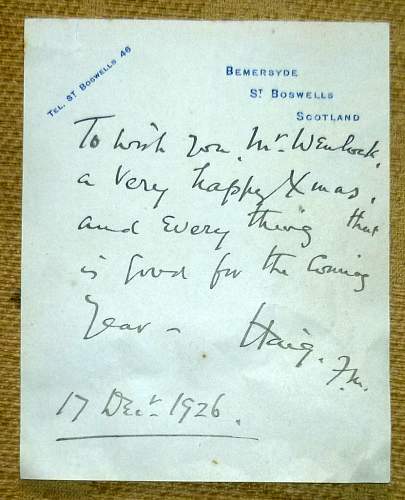 TEL. ST BOSWELLS 46
BEMERSYDE
ST BOSWELLS
SCOTLAND
To wish you, Mr. Wenlock,
a very happy Xmas,
and every thing that
is good for the coming
year –
Haig. F.M.
17 Decr. 1926.